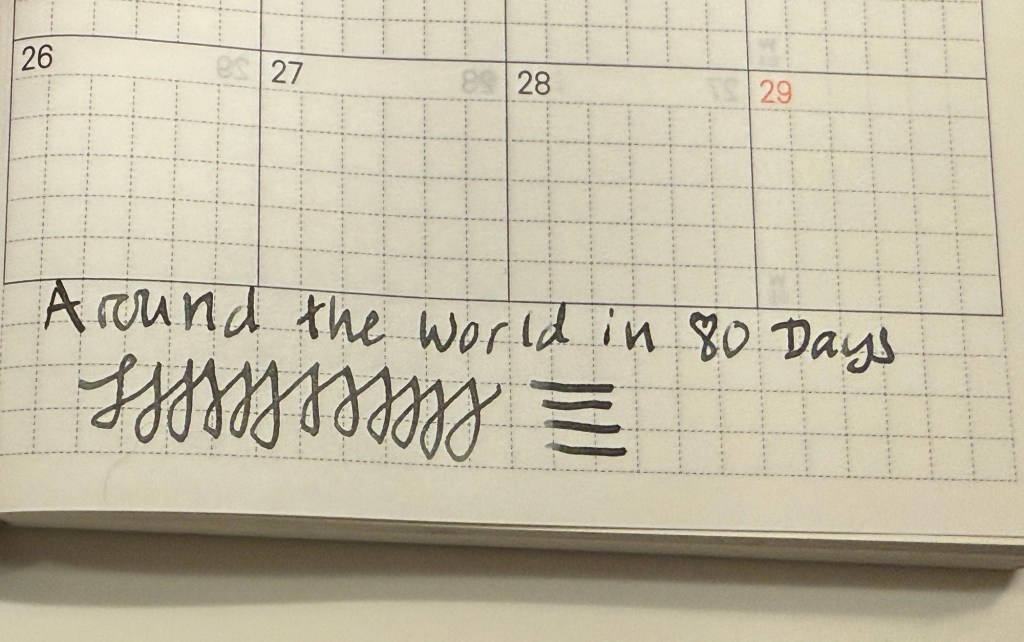 26 27 28 29
Around the World in 80 Days